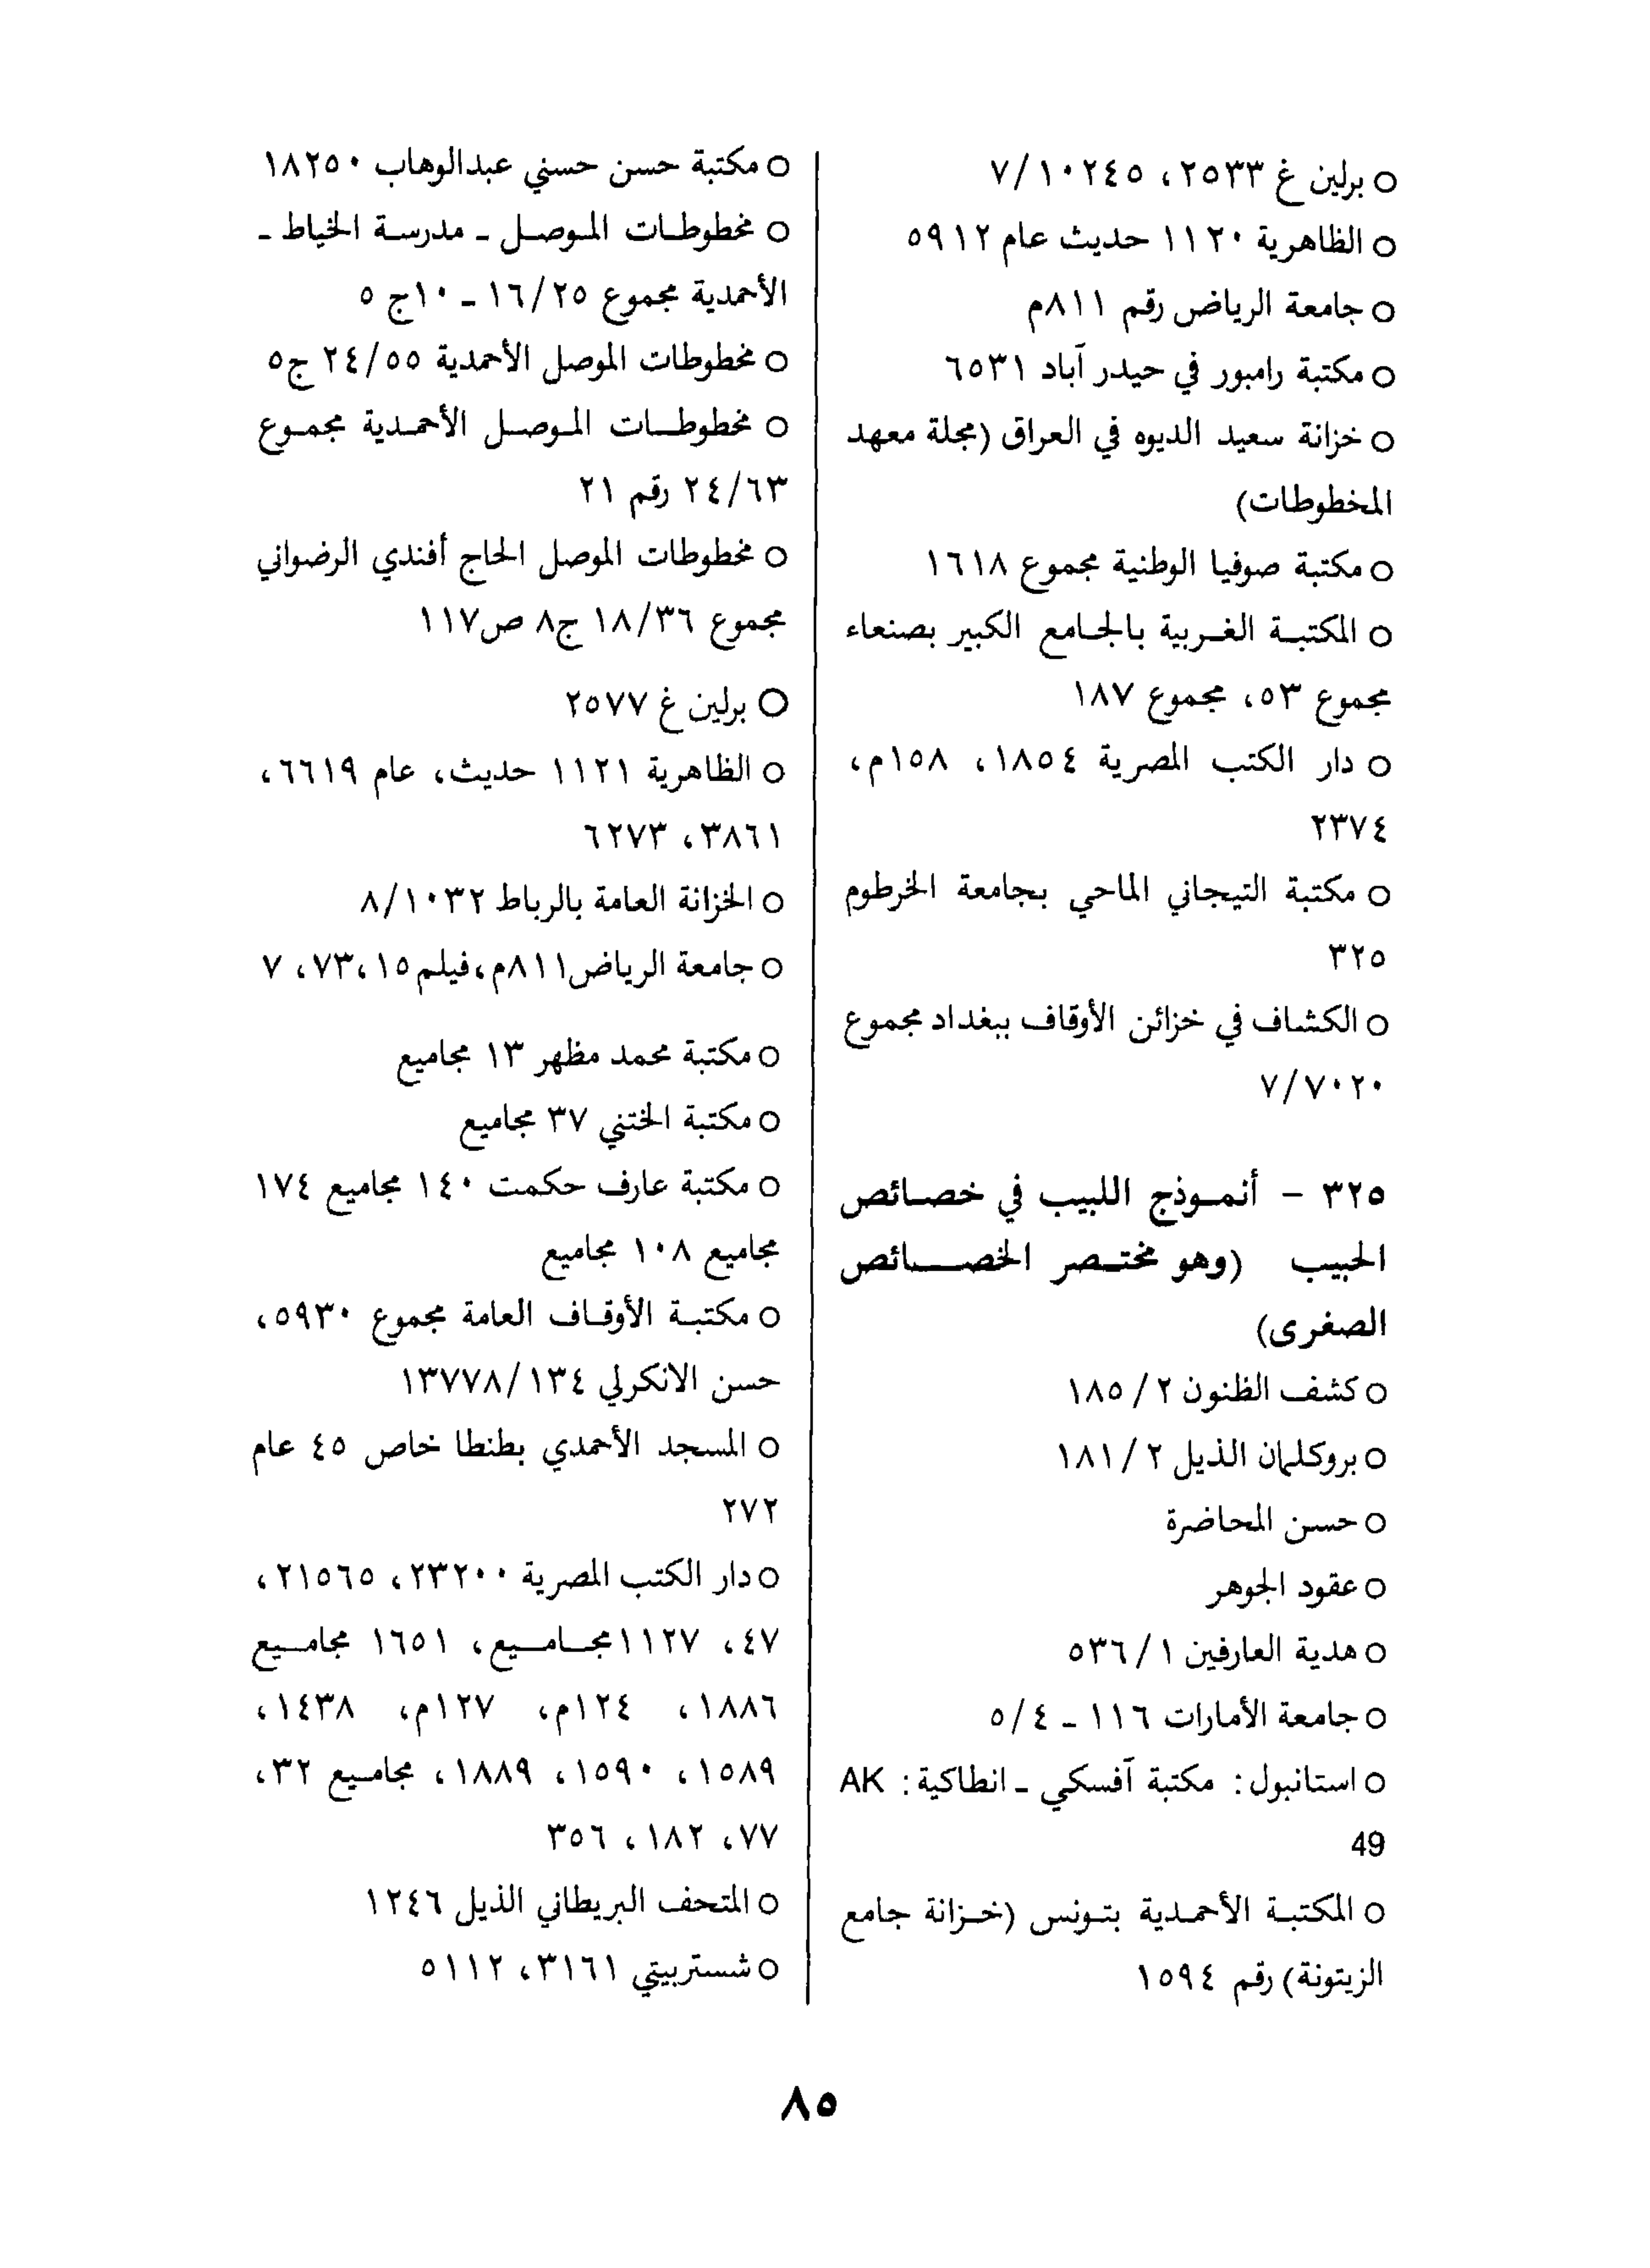 ○ برلين غ ٢٥٣٣، ٧/١٠٢٤٥
○ الظاهرية ١١٢٠ حديث عام ٥٩١٢
○ جامعة الرياض رقم ٨١١م
○ مكتبة رامبور في حيدر آباد ٦٥٣١
○ خزانة سعيد الديوه في العراق (مجلة معهد
المخطوطات)
○ مكتبة صوفيا الوطنية مجموع ١٦١٨
○ المكتبة الغربية بالجامع الكبير بصنعاء
مجموع ٥٣، مجموع ١٨٧
○ دار الكتب المصرية ١٨٥٤، ١٥٨م،
٢٣٧٤
○ مكتبة التيجاني الماحي بجامعة الخرطوم
٣٢٥
○ الكشاف في خزائن الأوقاف ببغداد مجموع
٧/٧٠٢٠
٣٢٥ - أنموذج اللبيب في خصائص
الحبيب (وهو مختصر الخصائص
الصغرى)
○ كشف الظنون ٢/ ١٨٥
○ بروكلمان الذيل ٢/ ١٨١
○ حسن المحاضرة
○ عقود الجوهر
○ هدية العارفين ١/ ٥٣٦
○ جامعة الأمارات ١١٦ ـ ٥/٤
○ استانبول: مكتبة آفسكي ـ انطاكية: AK
49
○ المكتبة الأحمدية بتونس (خزانة جامع
الزيتونة) رقم ١٥٩٤
○ مكتبة حسن حسني عبدالوهاب ١٨٢٥٠
○ مخطوطات الموصل ـ مدرسة الخياط ـ
الأحمدية مجموع ١٦/٢٥ ـ ١٠ج ٥
○ مخطوطات الموصل الأحمدية ٢٤/٥٥ ج٥
○ مخطوطات الموصل الأحمدية مجموع
٢٤/٦٣ رقم ٢١
○ مخطوطات الموصل الحاج أفندي الرضواني
مجموع ١٨/٣٦ ج٨ ص١١٧
○ برلين غ ٢٥٧٧
○ الظاهرية ١١٢١ حديث، عام ٦٦١٩،
٣٨٦١، ٦٢٧٣
○ الخزانة العامة بالرباط ٨/١٠٣٢
○ جامعة الرياض٨١١م،فيلم١٥،٧٣، ٧
○ مكتبة محمد مظهر ١٣ مجاميع
○ مكتبة الختني ٣٧ مجاميع
○ مكتبة عارف حكمت ١٤٠ مجاميع ١٧٤
مجاميع ١٠٨ مجاميع
○ مكتبة الأوقاف العامة مجموع ٥٩٣٠،
حسن الانكرلي ١٣٧٧٨/١٣٤
○ المسجد الأحمدي بطنطا خاص ٤٥ عام
٢٧٢
○ دار الكتب المصرية ٢٣٢٠٠، ٢١٥٦٥،
٤٧، ١١٢٧مجاميع، ١٦٥١ مجاميع
١٨٨٦، ١٢٤م، ١٢٧م، ١٤٣٨،
١٥٨٩، ١٥٩٠، ١٨٨٩، مجاميع ٣٢،
٧٧، ١٨٢، ٣٥٦
○ المتحف البريطاني الذيل ١٢٤٦
○ شستربيتي ٣١٦١، ٥١١٢
٨٥